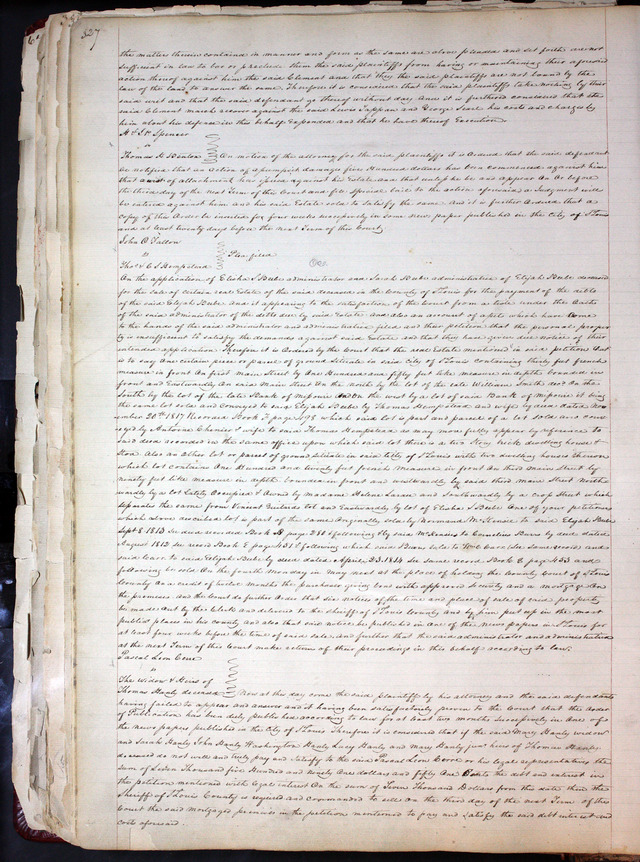 327
the matters therein contained in manner and form as the same are above pleaded and set forth are not
sufficient in law to bar or preclude them the said plaintiffs from having or maintaining their aforesaid
action thereof against him the said Clement and that they the said plaintiffs are not bound by the
law of the land to answer the same. Therefore it is considered that the said plaintiffs take nothing by their
said writ and that the said defendant go thereof without day. And it is further considered that the
said Clement recover against the said Lewis Tappan and George his costs and charges by
him about his defence in this behalf expended and that he have thereof Execution
H & J R Spencer
"
Thomas H Benton On motion of the attorney for the said plaintiffs it is Ordered that the said defendant
be notified that an action of assumpsit damage five Hundred dollars has been commenced against him
that a writ of attachment has issued against his Estate and that unless he be and appear on or before
the third day of the next Term of this Court and file Special bail to the action aforesaid a Judgment will
be entered against him and his said Estate sold to satisfy the same. and it is further Ordered that a
copy of this Order be inserted for four weeks successively in some news paper published in the City of St Louis
and at least twenty days before the next Term of this Court
John O'Fallon
" Plea filed
Thos & C S Hempstead
On the application of Elisha S Bebe administrator and Sarah Bebe administratrix of Elijah Bebe deceased
for the sale of certain real Estate of the said deceased in the County of St Louis for the payment of the debts
of the said Elijah Bebe and it appearing to the satisfaction of the Court from a under the Oaths
of the said administrators of the debts due by said Estate and also an account of assets which have come
to the hands of the said administrator and administratrix filed and their petition that the personal proper
ty is insufficient to satisfy the demands against said Estate and that they have given due notice of their
intended application Therefore it is Ordered by the Court that the real Estate mentioned in said petition that
is to say One certain piece or parcel of ground Situate in said City of St Louis containing thirty feet french
measure in front On first Main Street by One Hundred and fifty feet like measure in depth bounded in
front and Eastwardly On said Main Street On the north by the lot of the late William Smith and On the
South by the lot of the late Bank of Missouri and On the west by a lot of said Bank of Missouri it being
the same lot sold and Conveyed to said Elijah Bebe by Thomas Hempstead and wife by deed dated
ember 20th 1817 Recorded Book page 598 which said lot is part and parcel of a lot sold and conv
eyed by Antoine Chenier & wife to said Thomas Hempstead as may more fully appear by reference to
said deed recorded in the same office upon which said lot there is a two Story brick dwelling house &
Store. Also an other lot or parcel of ground situate in said City of St Louis with two dwelling houses thereon
which lot contains One Hundred and twenty feet french Measure in front On third Main Street by
ninety feet like measure in depth bounded in front and westwardly by said third Main Street North
wardly by a lot lately Occupied & Owned by madame Helene and Southwardly by a cross street which
separates the same from Vincent lot and Eastwardly by lot of Elisha S Bebe One of your petitioners
which above described lot is part of the same Originally sold by Normand McKenzie to said Elijah Bebe
Sept 8 1813 See deed recorded Book page 258 & following by said McKenzie to Cornelius by deed dated
August 1812 see record Book page & following which said sold to Wm Carr (See Same record) and
said Carr to said Elijah Bebe by deed dated April 23. 1814 see same record Book E page 453 and
following be sold On the fourth Monday in May next at the place of holding the County Court of St Louis
County On a credit of twelve months the purchasers giving bond with approved Security and a mortgage On
the premises and the Court do further Order that six notices of the time and place of sale of said property
be made out by the clerk and delivered to the sheriff of St Louis County and by him put up in the most
public places in his county and also that said notice be published in One of the News papers in St Louis for
at least four weeks before the time of said sale, and further that the said administrator and administratrix
at the next Term of this Court make return of their proceedings in this behalf according to law.
Pascal Leon Cerré
"
The Widow & Heirs of
Thomas Hanly deceased Now at this day come the said plaintiff by his attorney and the said defendants
having failed to appear and answer and it having been satisfactorily proven to the Court that the Order
of Publication has been duly published according to law for at least two months Successively in One of
the news papers published in the City of St Louis Therefore it is considered that if the said Mary Hanly widow
and Sarah Hanly John Hanly Washington Hanly Lucy Hanly and Mary Hanly junr heirs of Thomas Hanly
deceased do not well and truly pay and satisfy to the said Pascal Leon Cerré or his legal representatives the
sum of Seven Thousand five Hundred and ninety One dollars and fifty One Cents the debt and interest in
this petition mentioned with legal interest On the sum of Seven Thousand Dollars from this date then the
Sheriff of St Louis County is required and commanded to sell on the third day of the next Term of this
Court the said Mortgaged premises in the petition mentioned to pay and Satisfy the said debt interest and
costs aforesaid